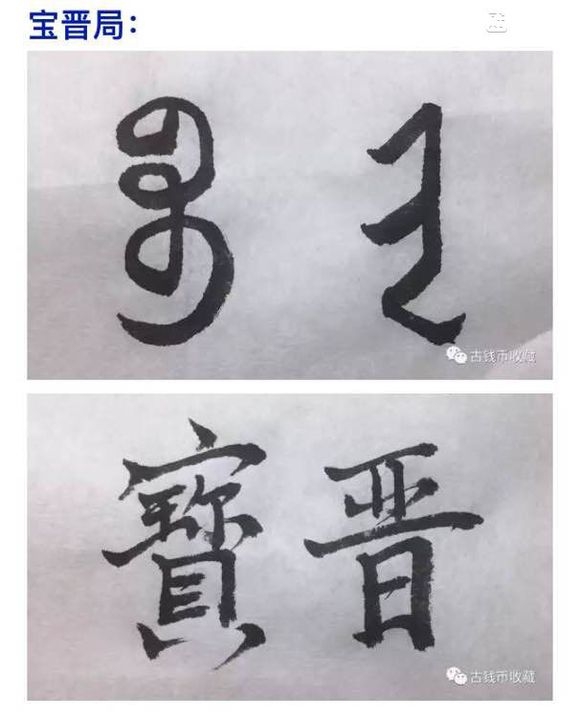 宝晋局：
ᠪᠣᠣ ᠵᡳᠨ
古钱币收藏
寳晋
古钱币收藏